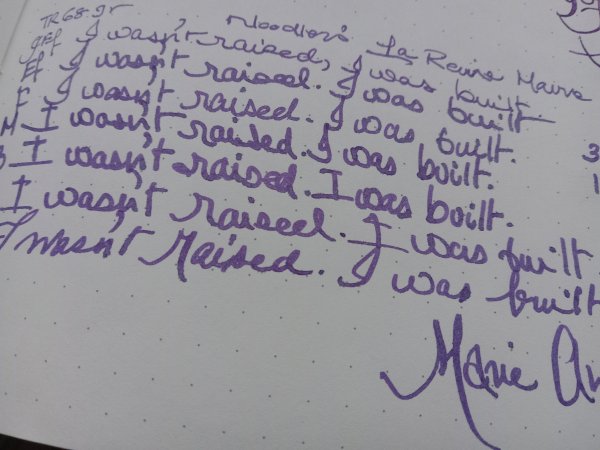 TR 68 gr Noodler's La Reine Mauve
gEf I wasn't raised, I was built.
Ef I wasn't raised. I was built
F I wasn't raised. I was built.
M I wasn't raised. I was built.
B I wasn't raised. I was built.
I wasn't raised. I was built
I wasn't raised. I was built
Marie